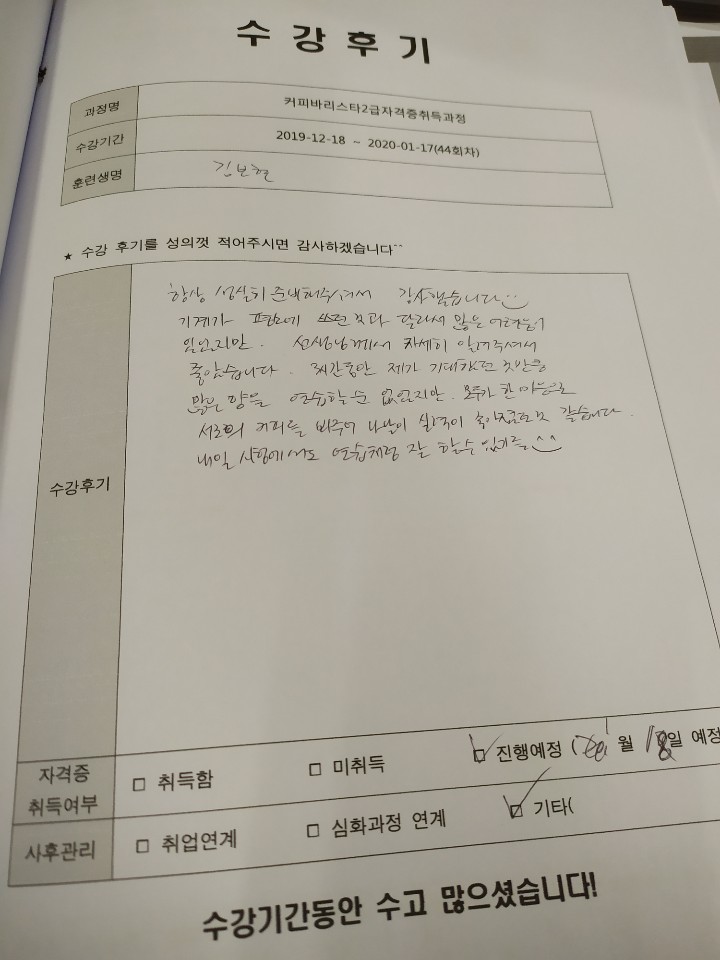 수 강 후 기
과정명 커피바리스타2급자격증취득과정
수강기간 2019-12-18 ~ 2020-01-17(44회차)
훈련생명 김보현
★ 수강 후기를 성의껏 적어주시면 감사하겠습니다^^
수강후기
항상 성실히 준비해주셔서 감사했습니다
기계가 평소에 쓰던 것과 달라서 많은 어려움이
있었지만. 선생님께서 자세히 알려주셔서
좋았습니다. 제가 기대했던 것만큼
많은 양을 연습할 순 없었지만. 모두가 한 마음으로
서로의 커피를 봐주어 나날이 실력이 것 같습니다.
내일 시험에서도 연습처럼 잘 할 수 있기를 ^^
자격증 취득여부 □ 취득함 □ 미취득 □ 진행예정 ( 1월 18일 예정
사후관리 □ 취업연계 □ 심화과정 연계 □ 기타(
수강기간동안 수고 많으셨습니다!